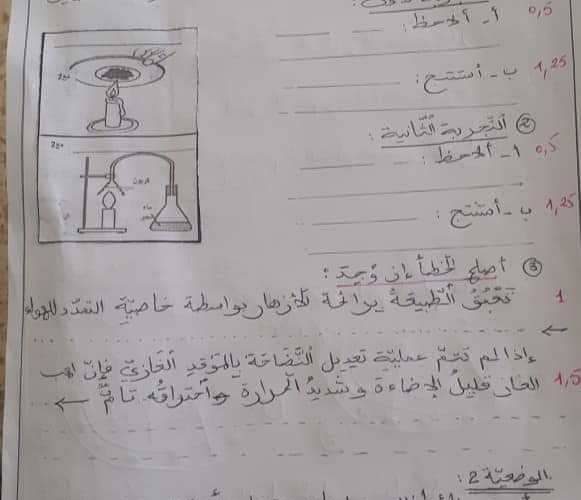 أ - ألاحظ : 0,5
ب - أستنتج : 1,25
② التجربة الثانية :
أ - ألاحظ : 0,5
ب - أستنتج : 1,25
ماء
③ أصلح الخطأ إن وجد :
تعبق الطبيعة برائحة الأزهار بواسطة خاصية التمدد للهواء 1
←
إذا لم تتم عملية تعديل النضاحة بالموقد الغازي فإن لهب
الغاز قليل الإضاءة وشديد الحرارة واحتراقه تام ← 1,5
الوضعية 2 :